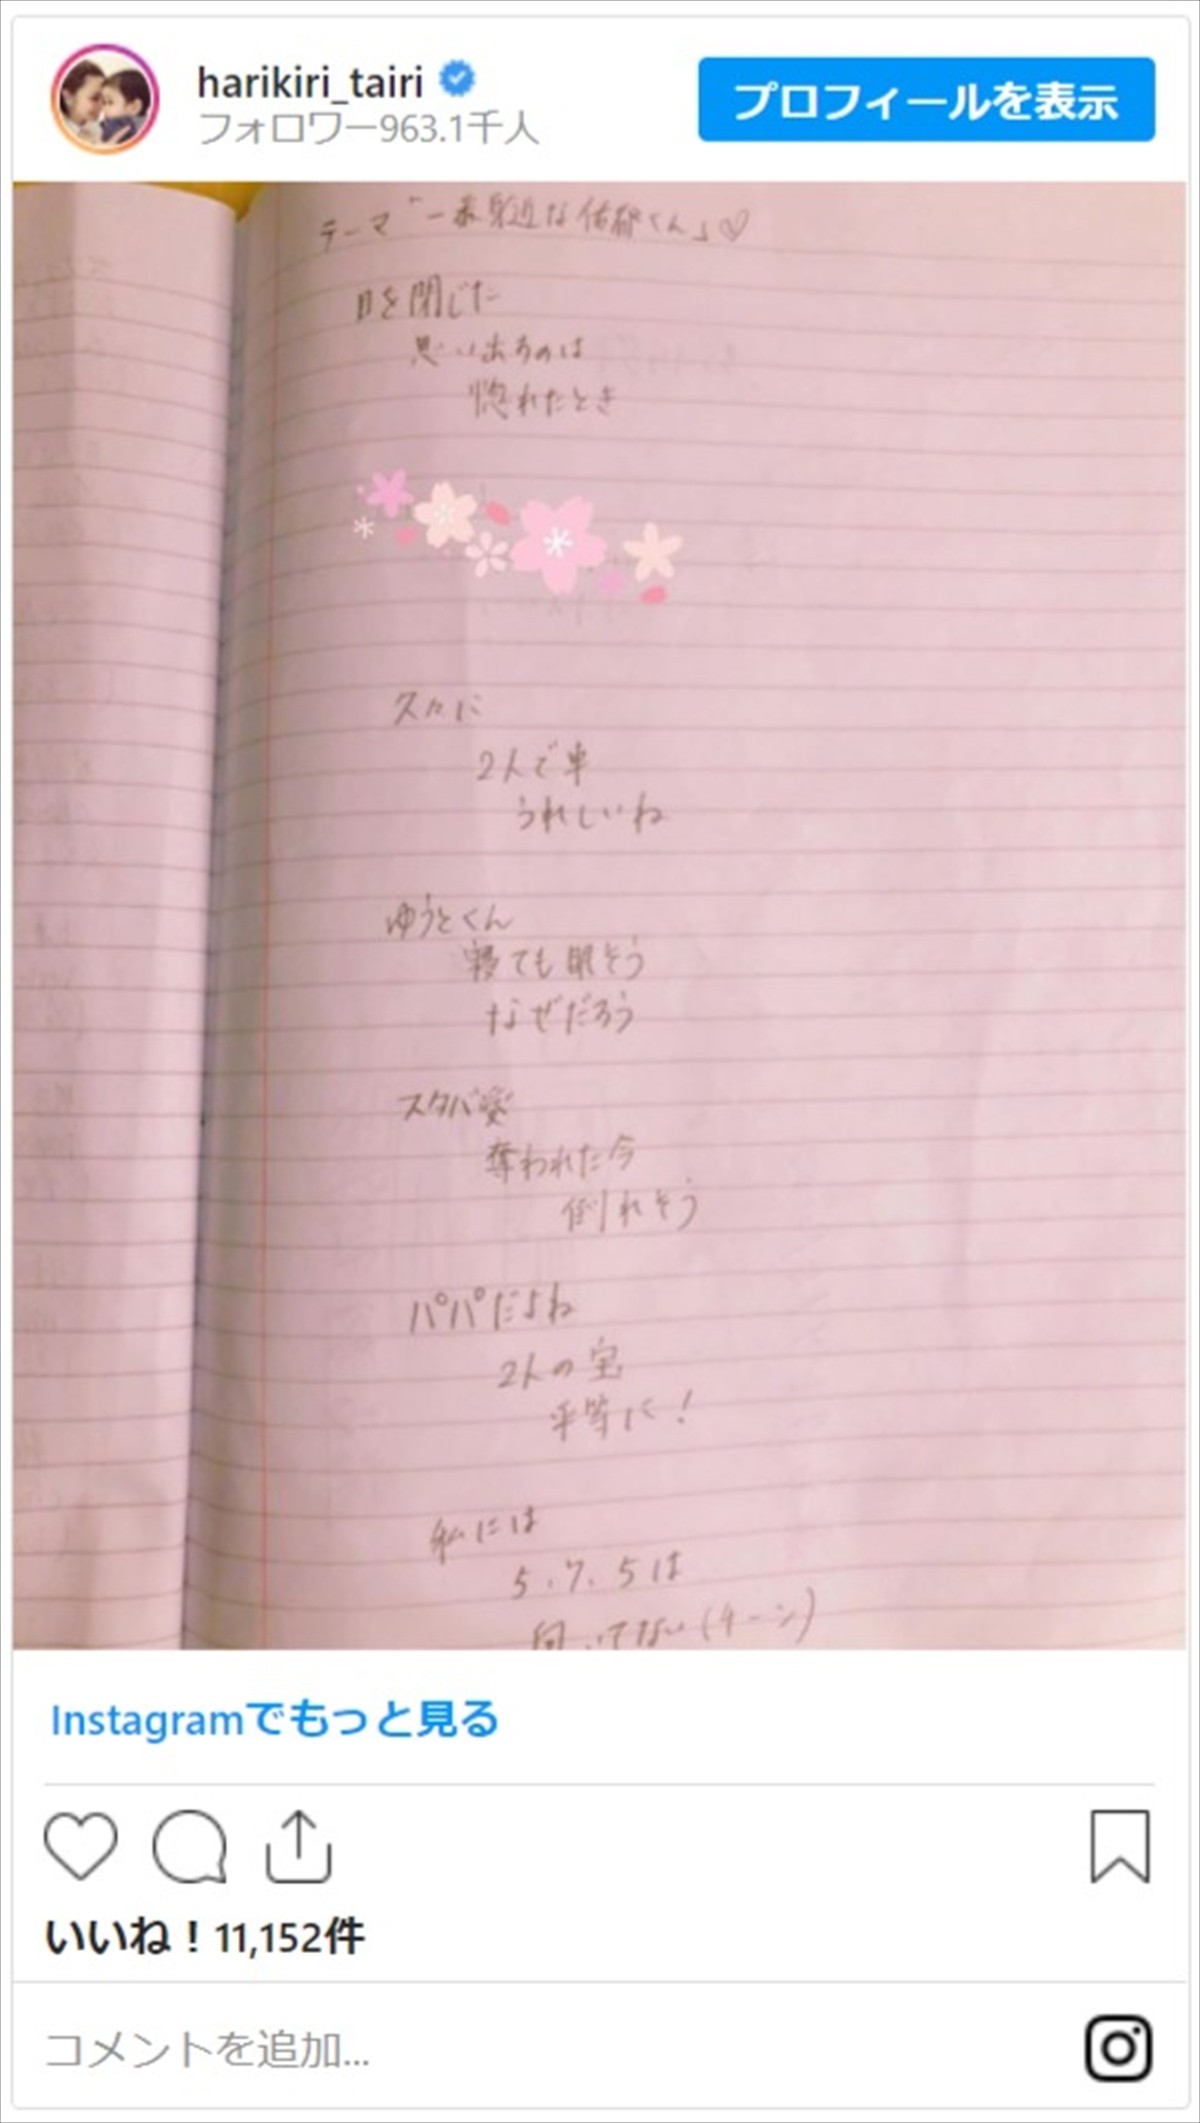 harikiri_tairi
フォロワー963.1千人
プロフィールを表示
テーマ「一番身近な佑都くん」♡
目を閉じた
思い出るのは
惚れたとき
久々に
2人で車
うれしいね
ゆうとくん
寝ても眠そう
なぜだろう
スタバ愛
奪われた今
倒れそう
パパだよね
2人の宝
平等に!
私には
5.7.5は
向いてない(チーン)
Instagramでもっと見る
いいね！11,152件
コメントを追加...